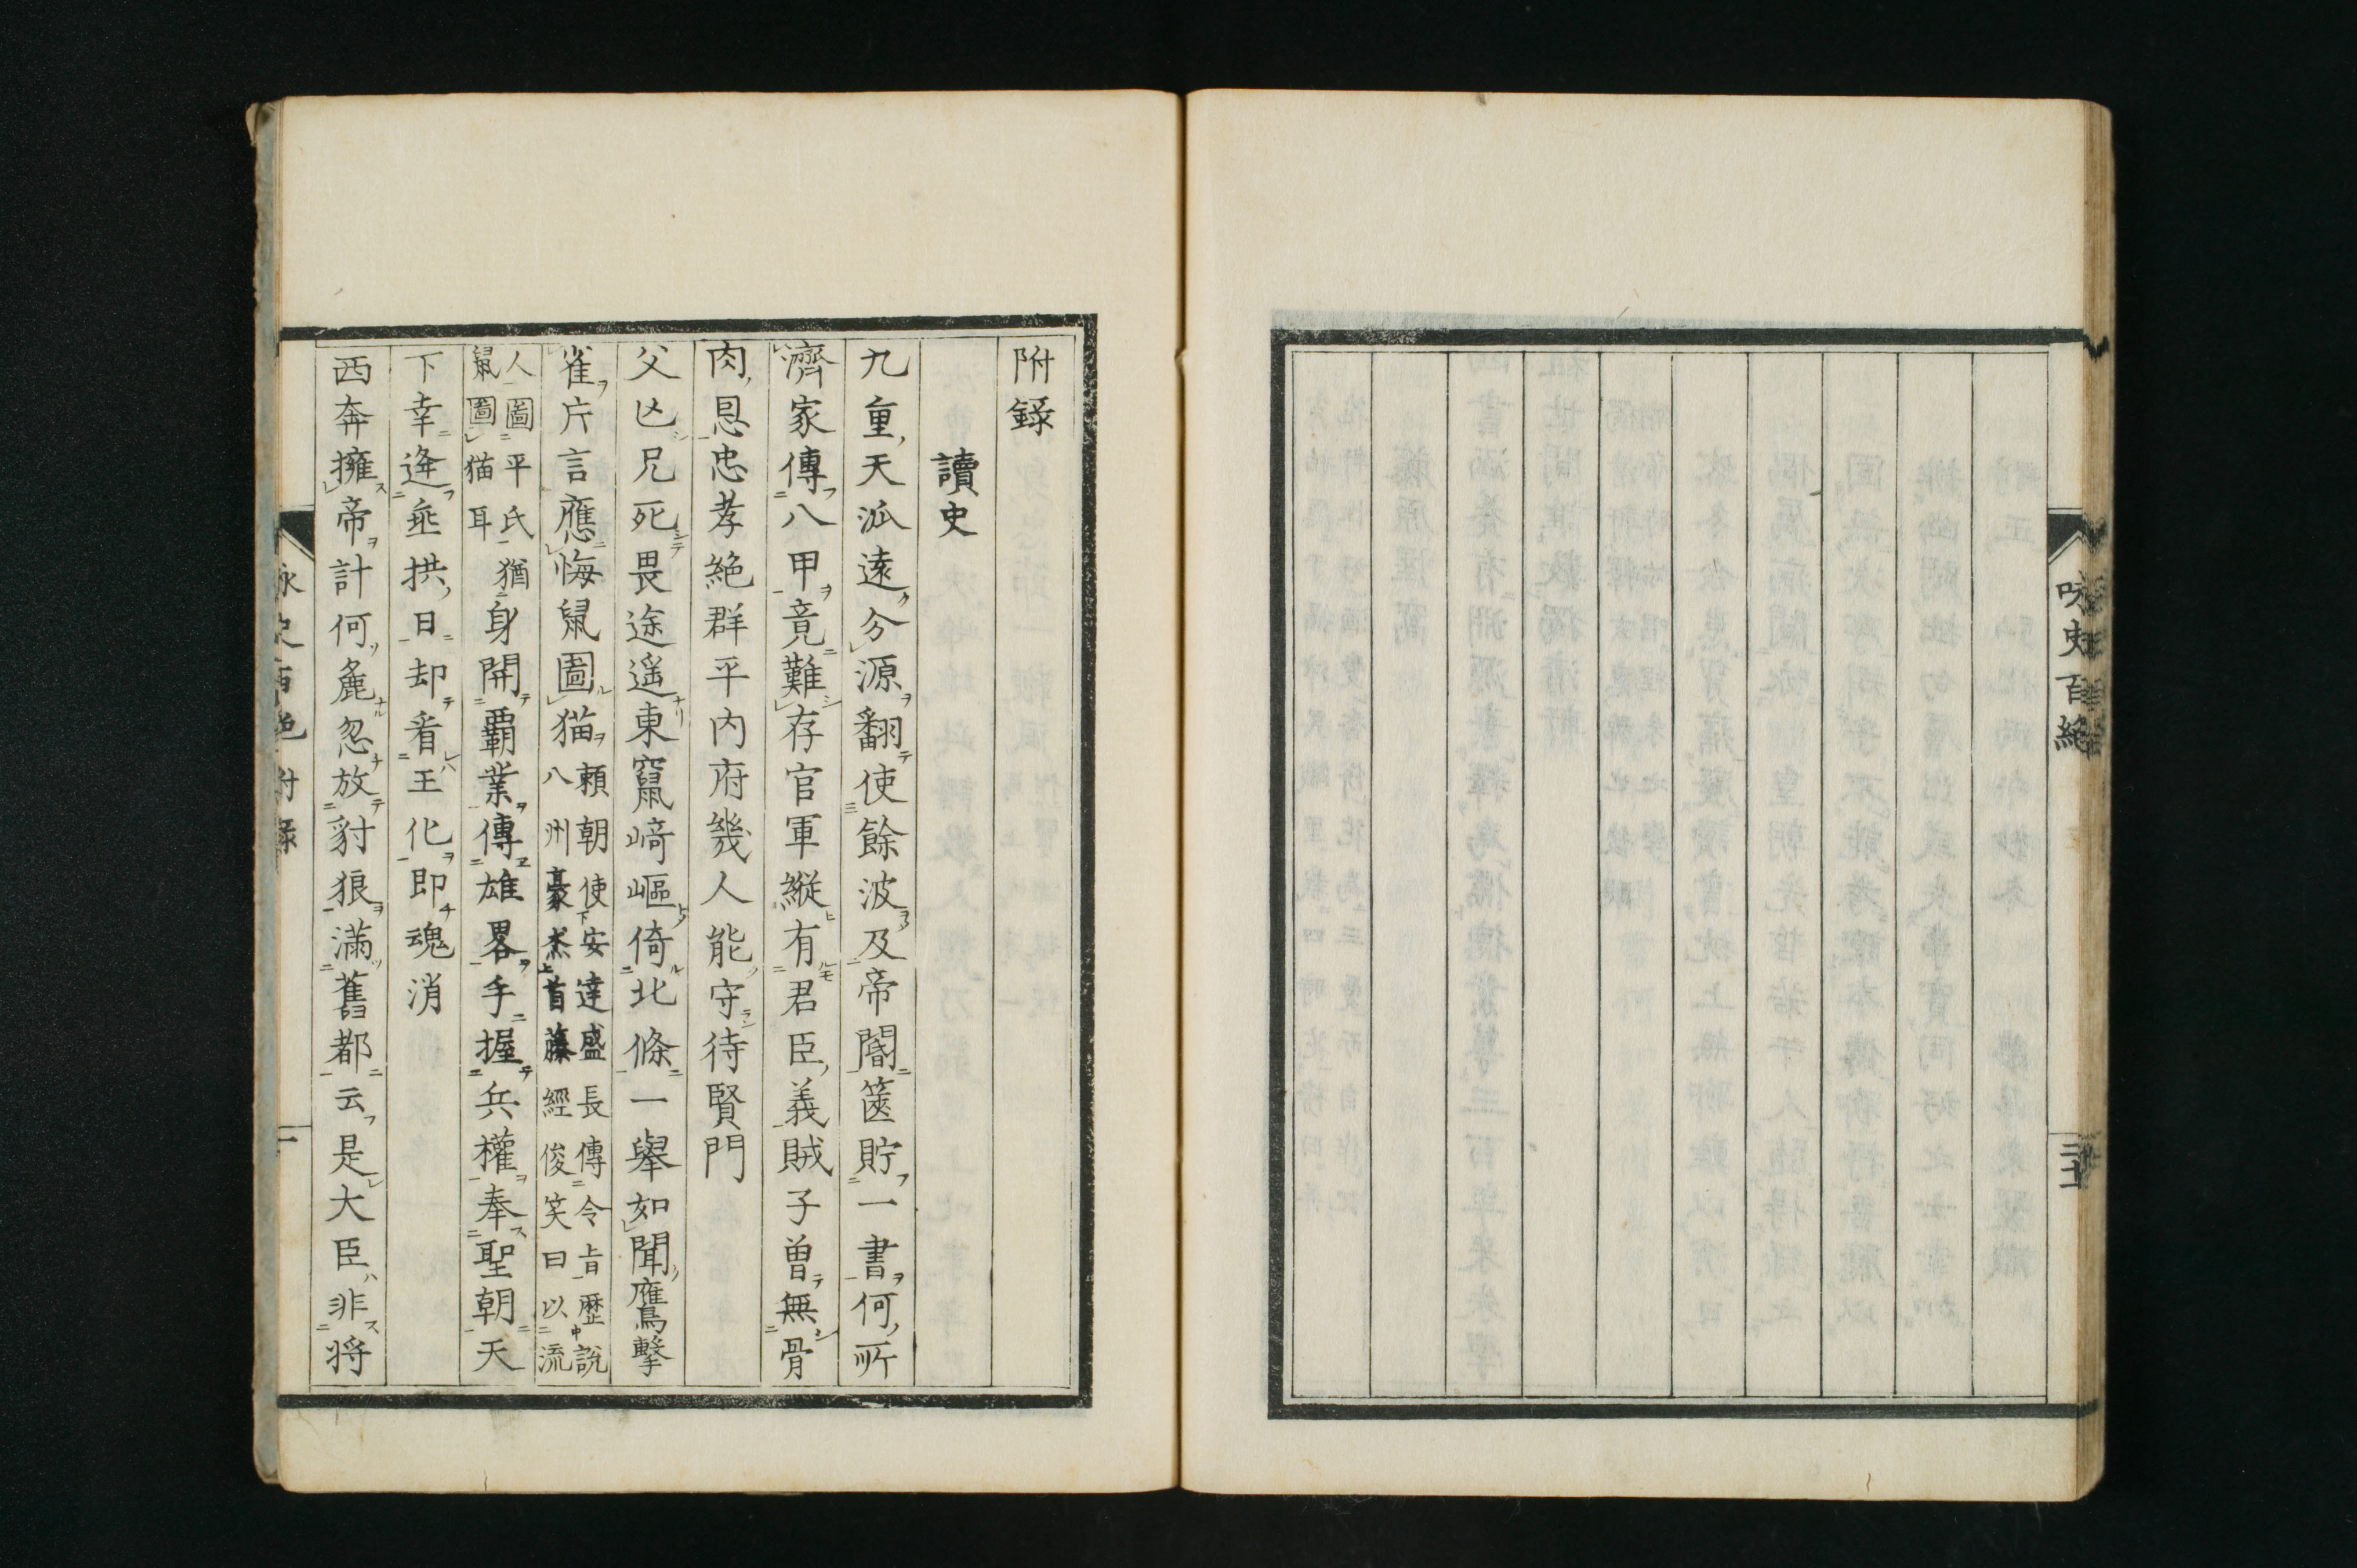 咏史百絶
三十
附錄
讀史
九重天泒遠分源翻使餘波及帝閽篋貯一書何所
濟家傳八甲竟難存官軍縱有君臣義賊子曽無骨
肉恩忠孝絶群平内府幾人能守待賢門
父亾兄死畏途遥東竄﨑嶇倚北條一舉如聞鷹擊
雀片言應悔鼠圖猫
頼朝使安達盛長傳令㫖歴説
八州豪杰首藤經俊笑曰以流
人圖平氏猶
鼠圖猫耳
身開覇業傳雄畧手握兵權奉聖朝天
下幸逄垂拱日却看王化即魂消
西奔擁帝計何麁忽放豺狼滿舊都云是大臣非将
咏史百絶附録
一